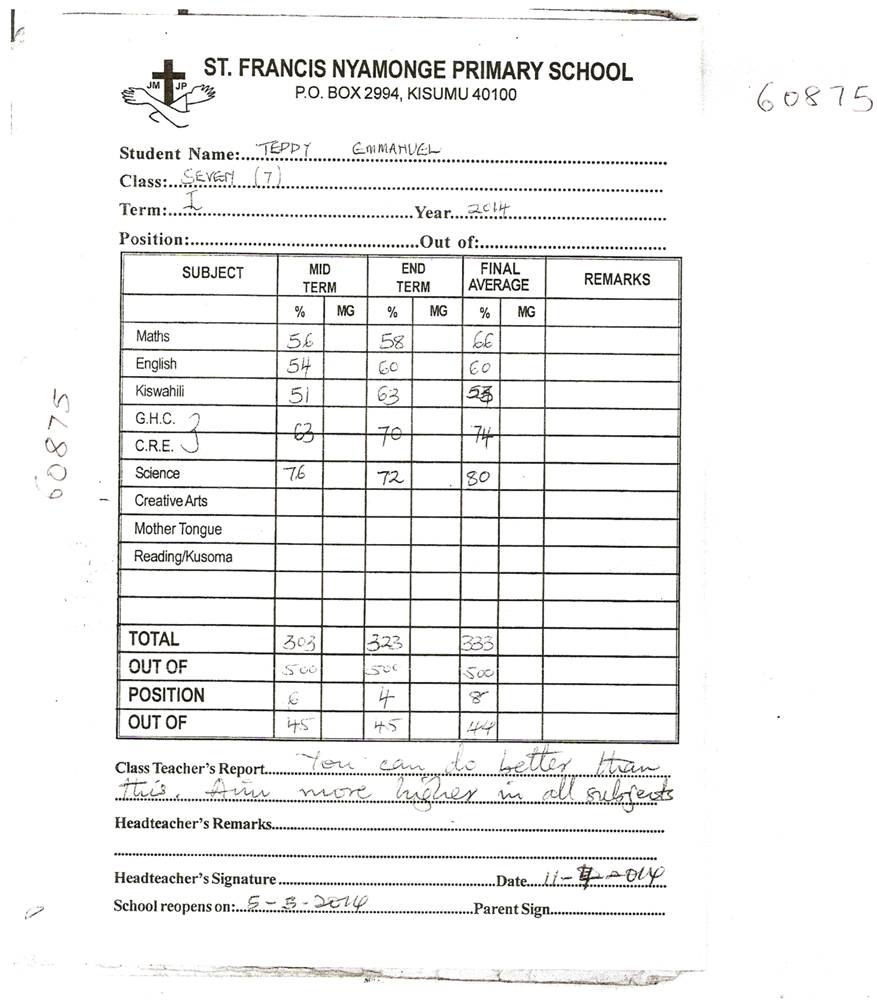 ST. FRANCIS NYAMONGE PRIMARY SCHOOL
JM JP
P.O. BOX 2994, KISUMU 40100
60875
Student Name: TEDDY EMMANUEL
Class: SEVEN (7)
Term: I Year 2014
Position: Out of:
SUBJECT MID TERM END TERM FINAL AVERAGE REMARKS
% MG % MG % MG
Maths 56 58 66
English 54 60 60
Kiswahili 51 63 53
G.H.C.
C.R.E. 63 70 74
Science 76 72 80
Creative Arts
Mother Tongue
Reading/Kusoma
TOTAL 303 323 333
OUT OF 500 500 500
POSITION 6 4 8
OUT OF 45 45 44
Class Teacher's Report You can do better than
this. Aim more higher in all subjects
Headteacher's Remarks
Headteacher's Signature Date 11-4-2014
School reopens on: 5-5-2014 Parent Sign
60875